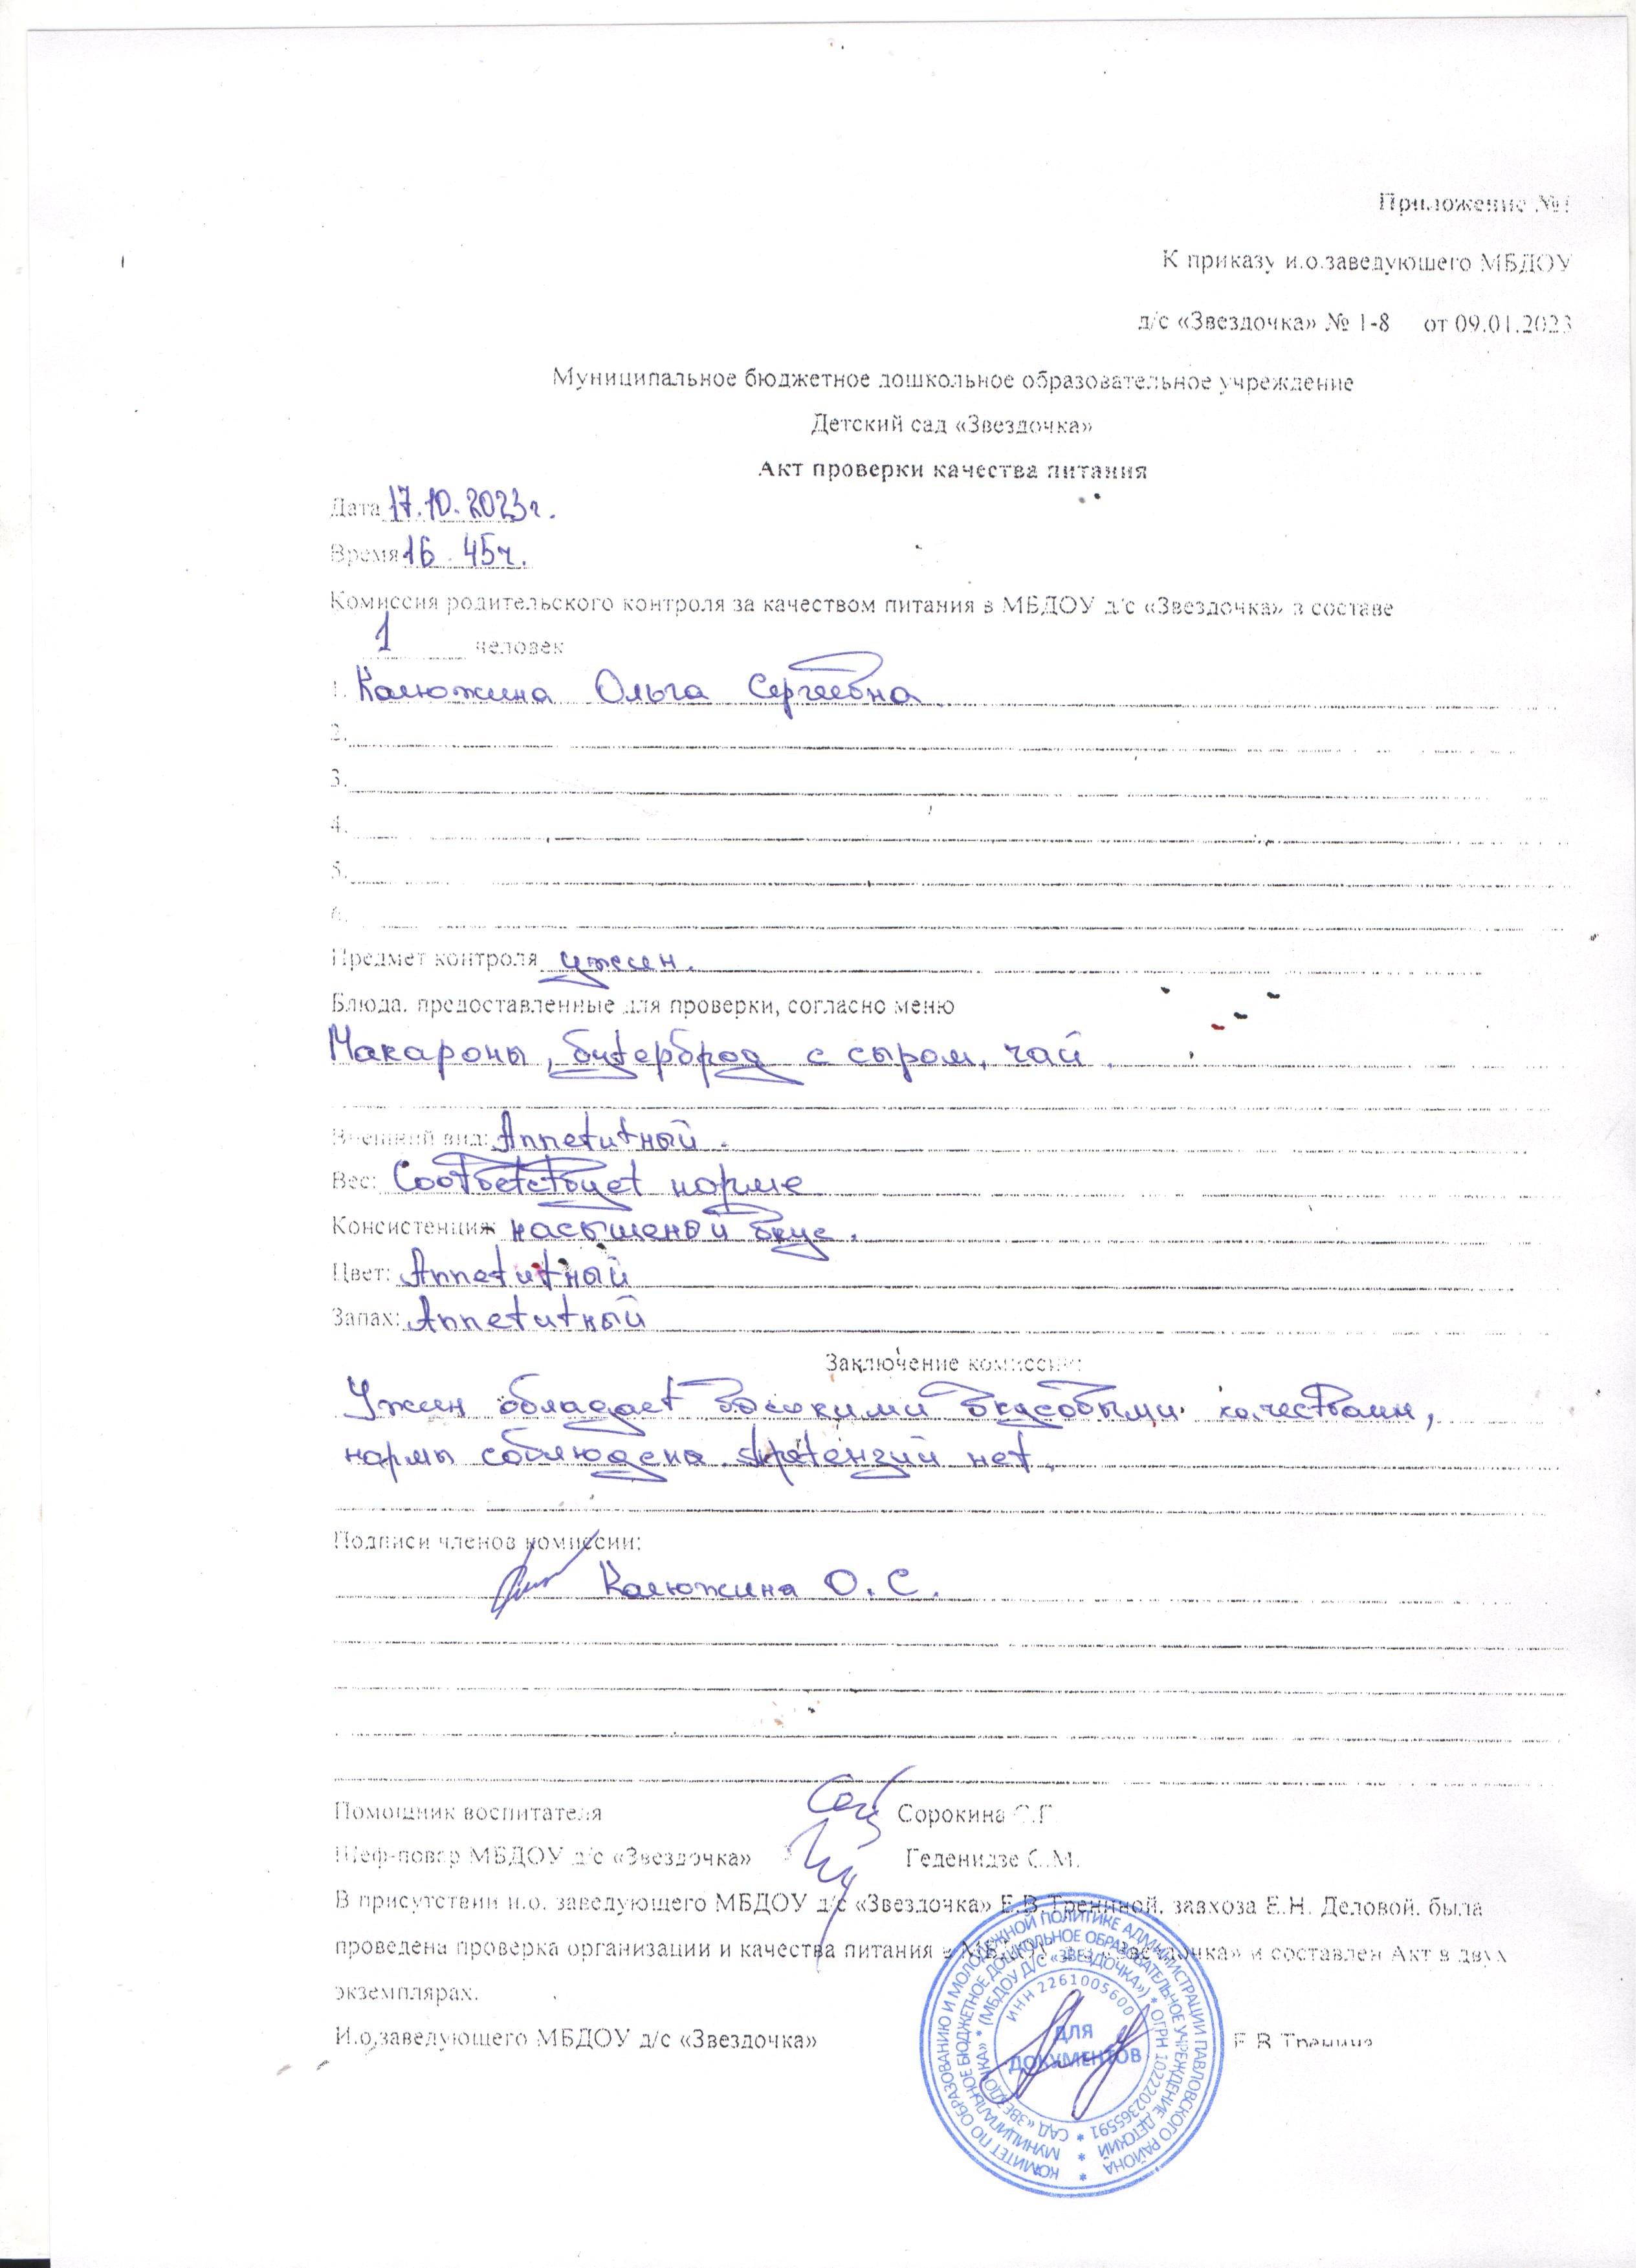 Приложение №1
К приказу и.о.заведующего МБДОУ
д/с «Звездочка» № 1-8 от 09.01.2023
Муниципальное бюджетное дошкольное образовательное учреждение
Детский сад «Звездочка»
Акт проверки качества питания
Дата 17.10.2023г.
Время 16 45ч.
Комиссия родительского контроля за качеством питания в МБДОУ д/с «Звездочка» в составе
1 человек
1. Калюжина Ольга Сергеевна
2.
3.
4.
5.
6.
Предмет контроля ужин.
Блюда, предоставленные для проверки, согласно меню
Макароны, бутерброд с сыром, чай.
Внешний вид: Аппетитный.
Вес: Соответствует норме
Консистенция: насышеной вкус.
Цвет: Аппетитный
Запах: Аппетитный
Заключение комиссии:
Ужин обладает высокими вкусовыми качествами,
нормы соблюдена. претензий нет.
Подписи членов комиссии:
Калюжина О.С.
Помощник воспитателя Сорокина С.Г.
Шеф-повар МБДОУ д/с «Звездочка» Геденидзе С.М.
В присутствии и.о. заведующего МБДОУ д/с «Звездочка» Е.В.Трениной, завхоза Е.Н. Деловой, была
проведена проверка организации и качества питания в МБДОУ д/с «Звездочка» и составлен Акт в двух
экземплярах.
И.о.заведующего МБДОУ д/с «Звездочка» Е.В.Тренина
КОМИТЕТ ПО ОБРАЗОВАНИЮ И МОЛОДЕЖНОЙ ПОЛИТИКЕ АДМИНИСТРАЦИИ ПАВЛОВСКОГО РАЙОНА *
МУНИЦИПАЛЬНОЕ БЮДЖЕТНОЕ ДОШКОЛЬНОЕ ОБРАЗОВАТЕЛЬНОЕ УЧРЕЖДЕНИЕ ДЕТСКИЙ *
САД «ЗВЕЗДОЧКА» * (МБДОУ Д/С «ЗВЕЗДОЧКА») * ОГРН 1022202365591 *
ИНН 2261005600
ДЛЯ
ДОКУМЕНТОВ